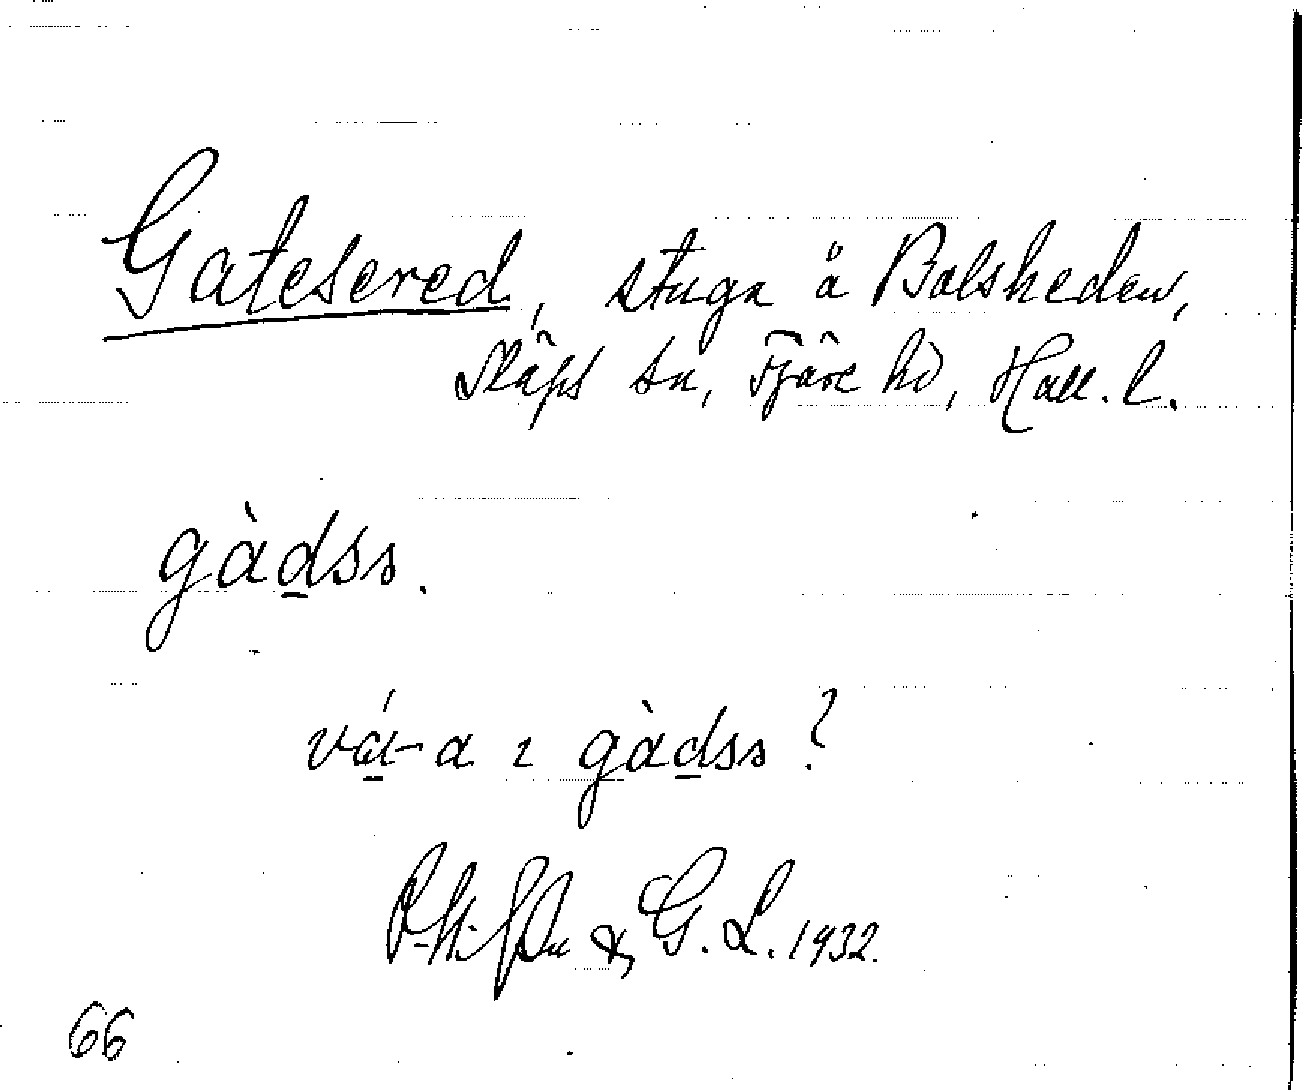 Gatesered, stuga å Bolsheden,
Släps sn, Fjäre hd, Hall. l.
gàdss.
vá-a ı gàdss?
& G. L. 1932.
66